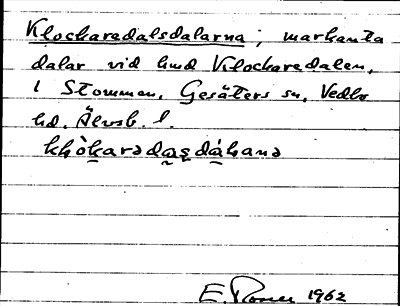 Klockaredalsdalarna; markanta
dalar vid hmd Klockaredalen,
1 Stommen, Gesäters sn, Vedbo
hd. Älvsb. l.
khòkarədasdáhanə
E. 1962